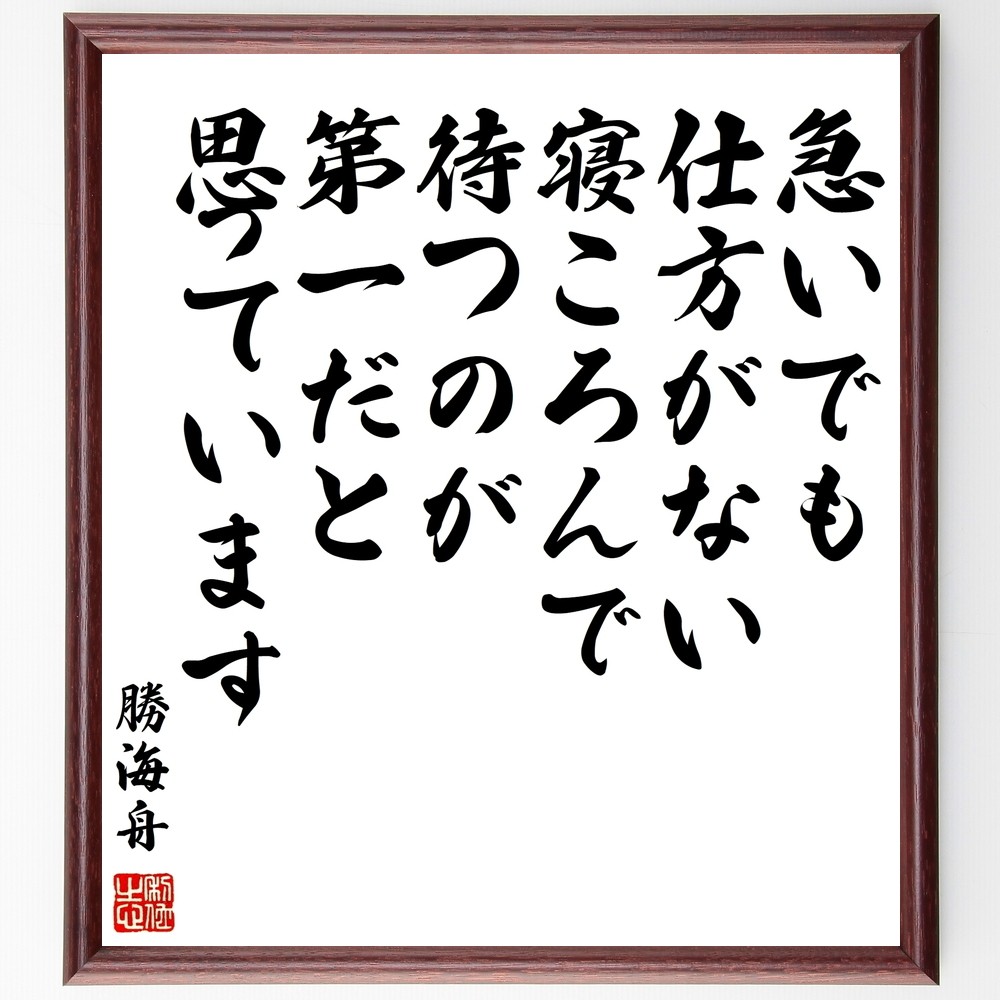 急いでも
仕方がない
寝ころんで
待つのが
第一だと
思っています
勝海舟